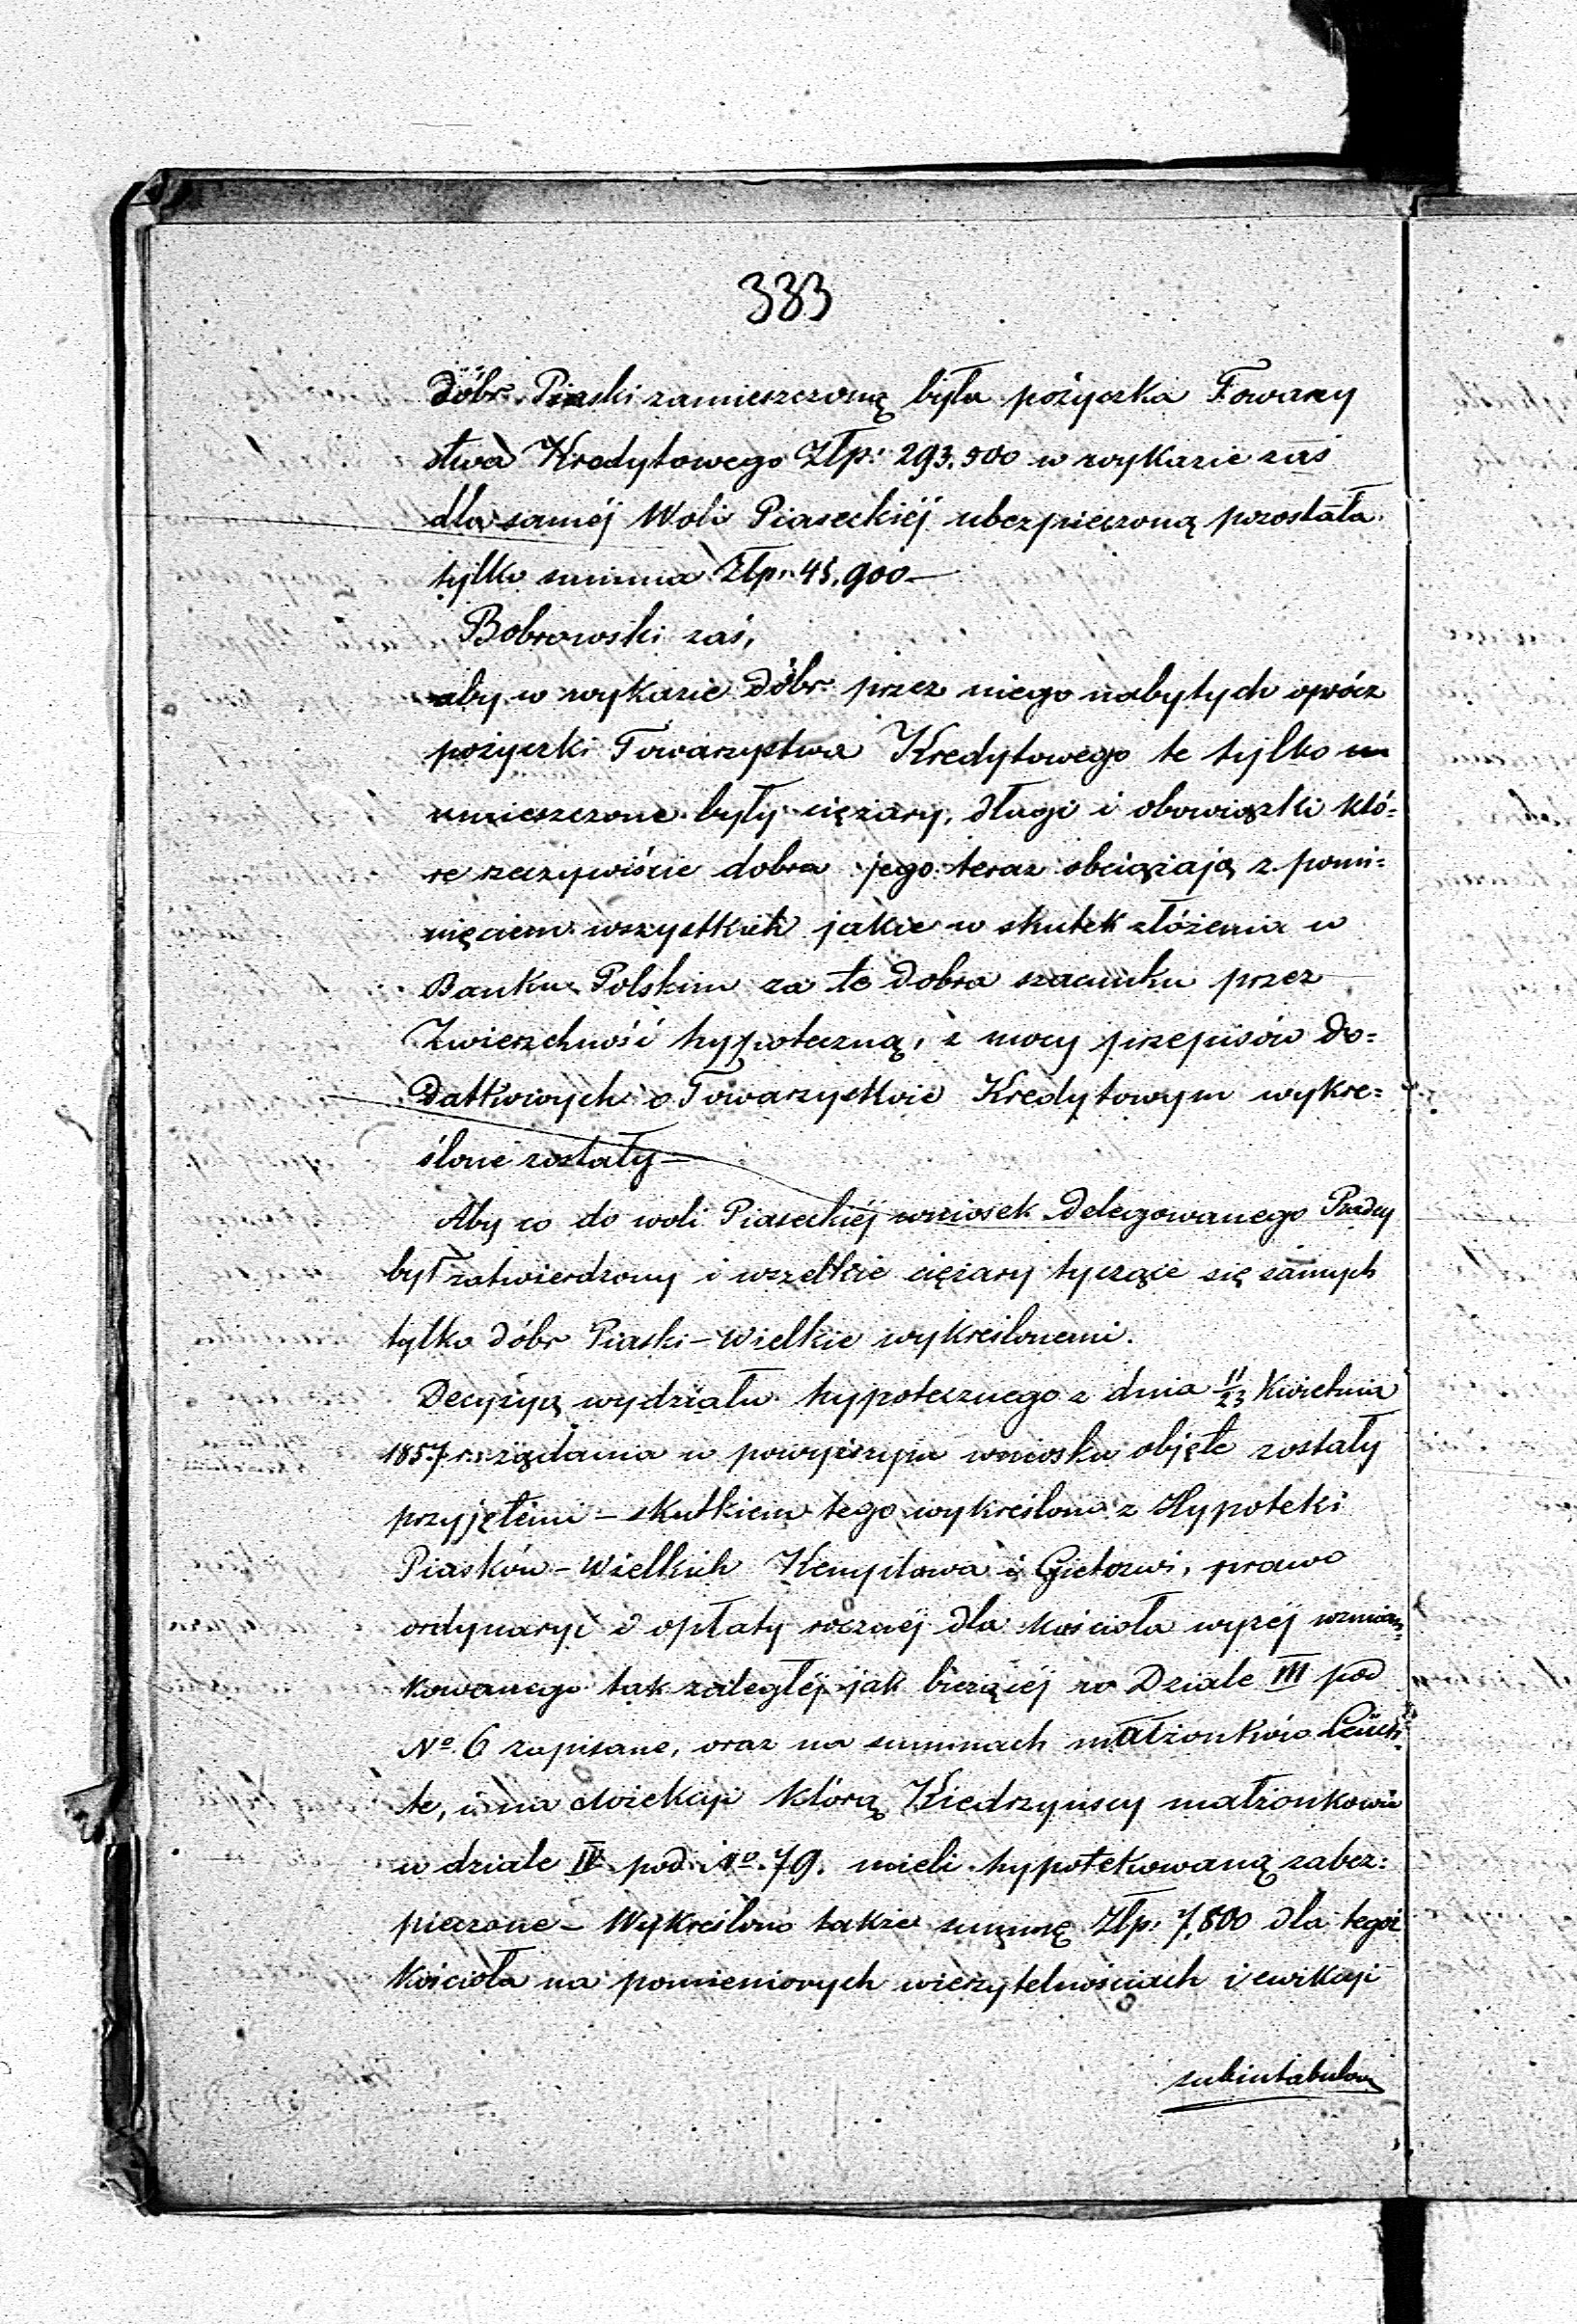 333
dóbr Piaski zamieszczoną była pożyczka Towarzy
stwa Kredytowego Złp: 293.500 w wykazie zaś
dla saméj Woli Piaseckiéj ubezpieczoną pozostała
tylko summa Złp: 45,900 —
Bobrowski zaś,
aby w wykazie dóbr przez niego nabytych oprócz
pożyczki Towarzystwa Kredytowego te tylko
umieszczone były ciężary, długi i obowiązki któ=
re rzeczywiście dobra jego teraz obciążają z pomi=
nięciem wszystkich jakie w skutek złóżenia w
Banku Polskim za te dobra szacunku przez
Zwierzchność hypoteczną, z mocy przepisów do=
datkowych o Towarzystwie Kredytowym wykre=
ślone zostały —
Aby co do woli Piaseckiéj wniosek Delegowanego Radcy
był zatwierdzony i wszelkie ciężary tyczące się samych
tylko dóbr Piaski – Wielkie wykreślonemi.
Decyzyą wydziału hypotecznego z dnia 11/23 Kwietnia
1857 r. żądania w powyższym wniosku objęte zostały
przyjętemi – skutkiem tego wykreślono z Hypoteki
Piasków – Wielkich Kempłowa i, prawo
ordynaryi i opłaty rocznéj dla kościoła wyżéj wzmian=
kowanego tak zaległéj jak bieżącéj w Dziale III pod
Nº 6 zapisane, oraz na summach małżonków
te, i na ewikcyi którą Kiedrzyńscy małżonkowie
w dziale IV pod Nº 79. mieli hypotekowaną zabez=
pieczone – Wykreślono także summę Złp: 7,800 dla tegoż
Kościoła na pomienionych wierzytelnościach i ewikcyi
subintabulow